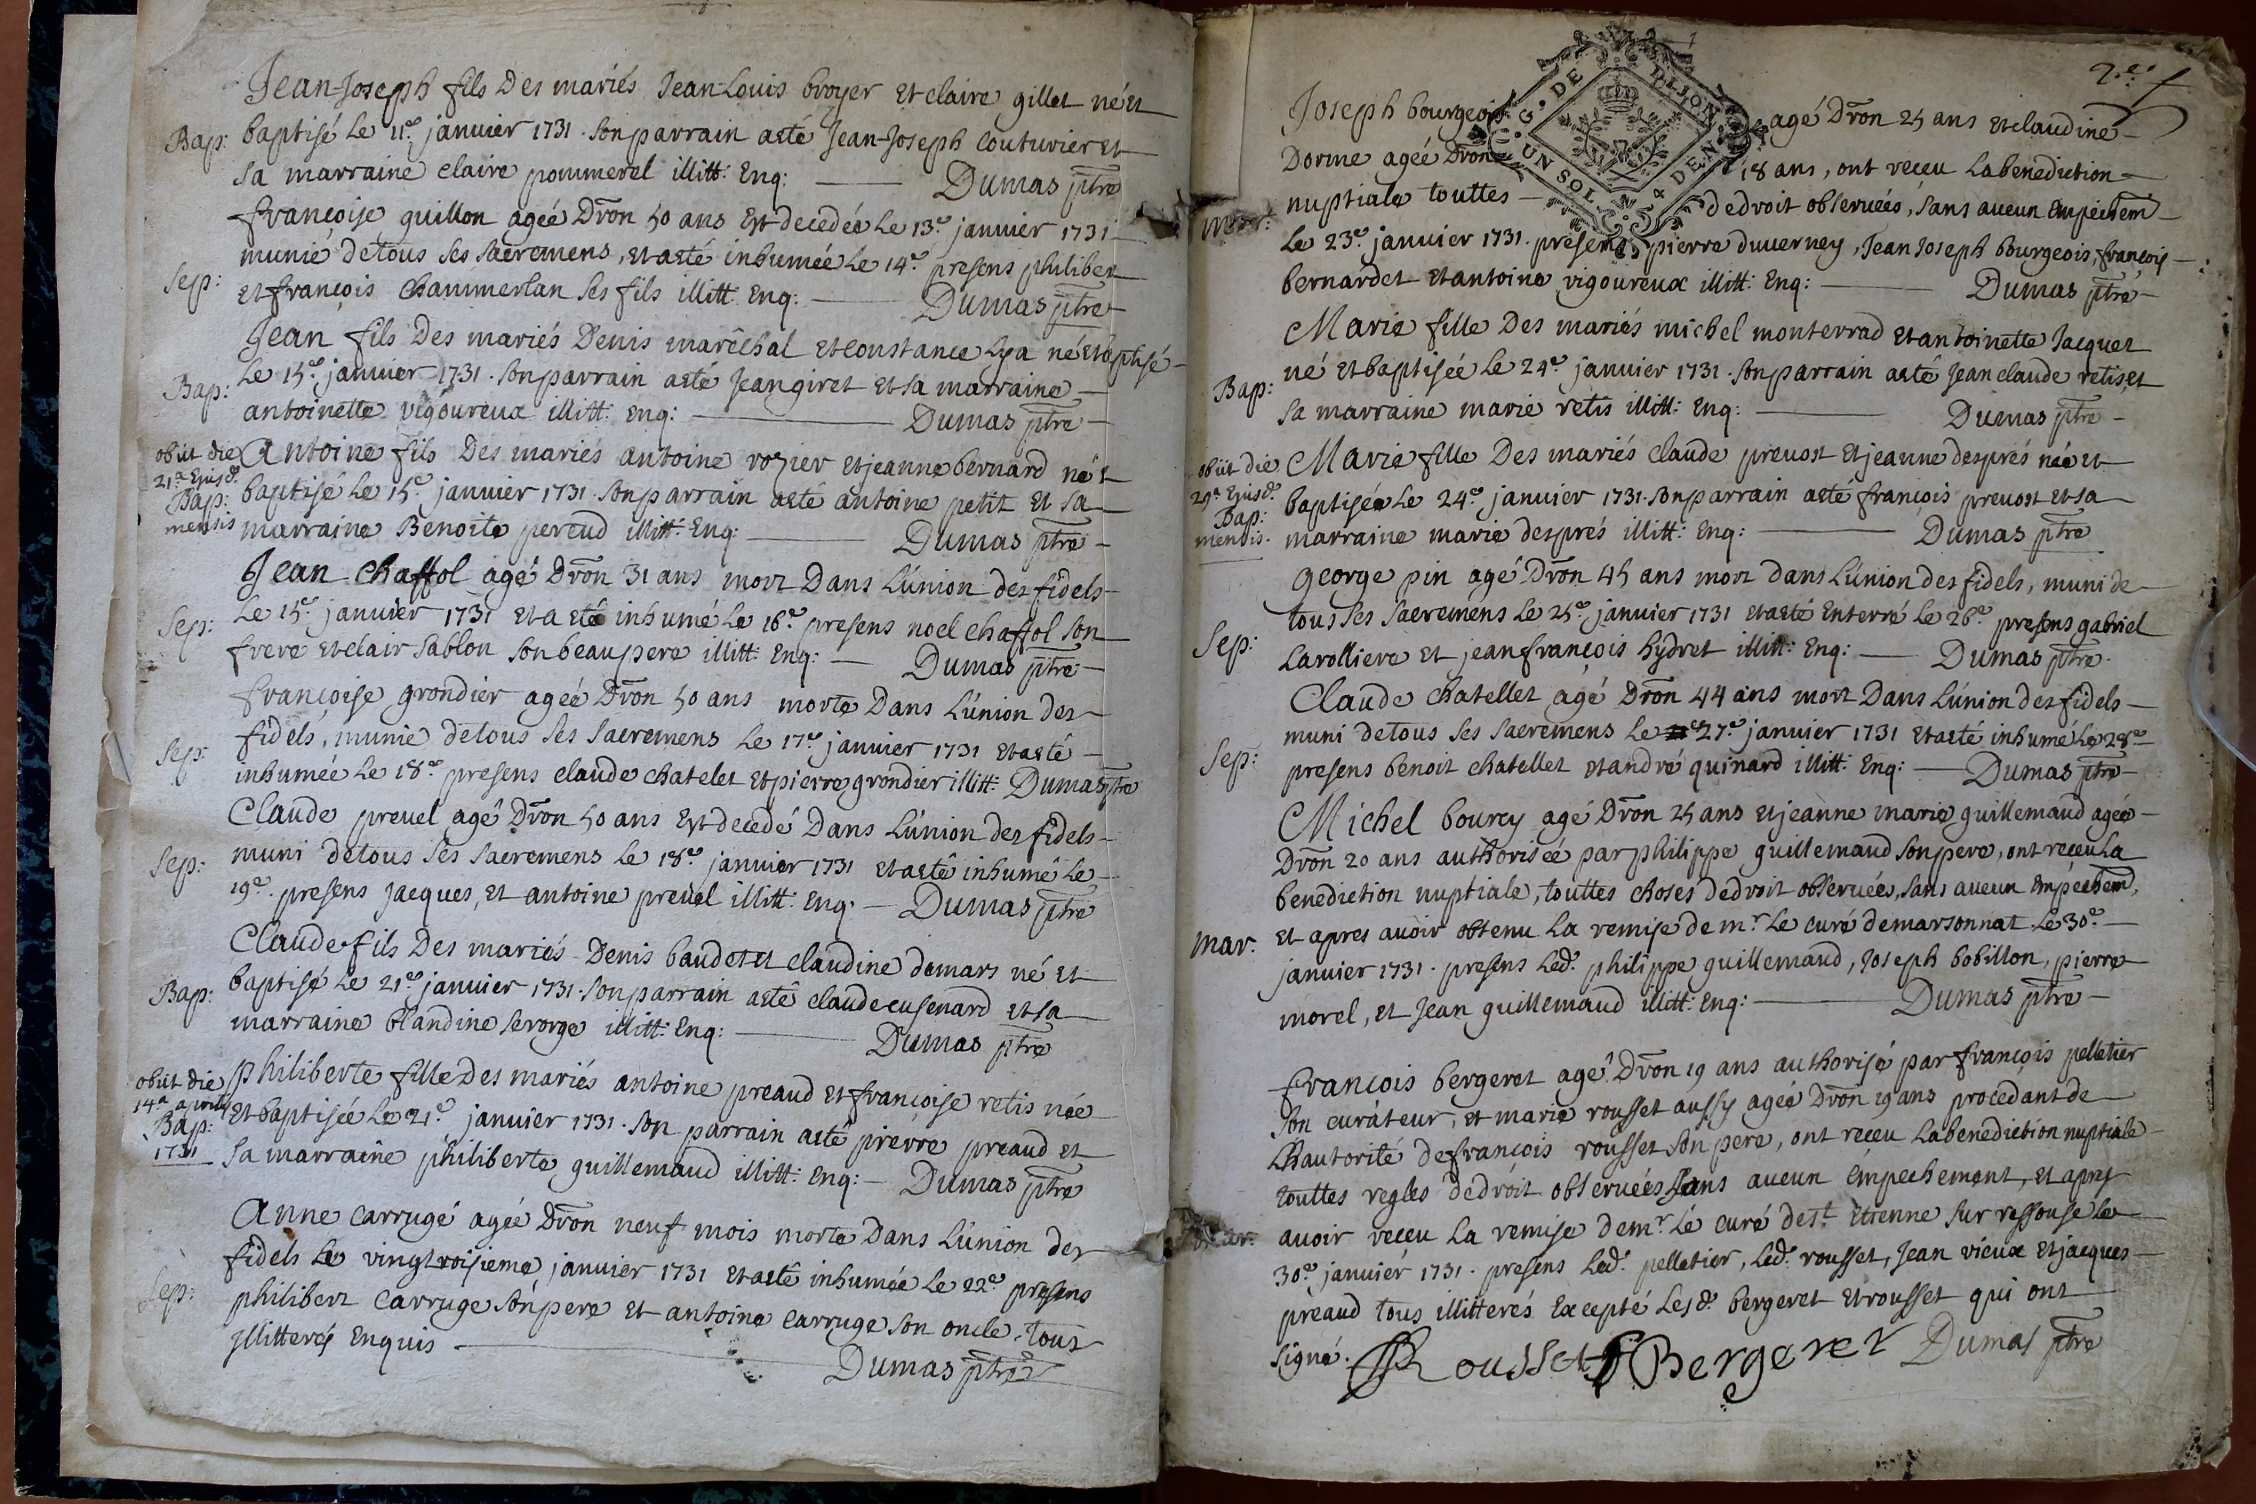 Jean-Joseph fils Des mariés Jean-Louis broyer Et claire gillet né et
Bap: baptisé Le 11e. janvier 1731. Son parrain aeté Jean-Joseph Couturier et
sa marraine claire pommerel illitt: Enq: Dumas ptre
françoise guillon ageé Dron 50 ans Est decedéé Le 13e. janvier 1731
munie detous ses sacremens, et aeté inhumeé Le 14e. presens philiber
Sep: et françois Chammerlan ses fils illitt Enq: Dumas ptre
Jean fils Des mariés Denis marêchal et Constance Lya né et baptisé
Bap: Le 15e. janvier 1731. son parrain aeté Jean giret et sa marraine
antoinette vigoureux illitt: Enq: Dumas ptre
obiit die 21a. Ejusd. mensis
Antoine fils Des mariés antoine rozier et jeanne bernard né et
Bap: baptisé Le 15e. janvier 1731. son parrain aeté antoine petit et sa
marraine Benoite pereud illitt: Enq: Dumas ptre
Jean Chaffol agé Dron 31 ans mort Dans L'union des fidels
Sep: Le 15e. janvier 1731 et a eté inhumé Le 16e. presens noel Chaffol son
frere et clair Sablon son beaupere illitt: Enq: Dumas ptre
françoise grondier ageé Dron 50 ans morte Dans L'union des
Sep: fidels, munie detous ses sacremens Le 17e. janvier 1731 et aeté
inhumée Le 18e. presens claude chatelet et pierre grondier illitt: Dumas ptre
Claude prevel agé Dron 50 ans Est decedé Dans L'union des fidels
Sep: muni detous ses sacremens Le 18e. janvier 1731 et aeté inhumé Le
19e. presens Jacques, et antoine prevel illitt: Enq: Dumas ptre
Claude fils Des mariés Denis baudet et claudine demars né et
Bap: baptisé Le 21e. janvier 1731. son parrain aeté claude cusenard et sa
marraine blandine serorge illitt: Enq: Dumas ptre
obiit die 14a aprilis 1731
philiberte fille Des mariés antoine preaud et françoise retis née
Bap: et baptisée Le 21e. janvier 1731. son parrain aeté pierre preaud et
sa marraine philiberte guillemaud illitt: Enq: Dumas ptre
Anne Carrugé ageé Dron neuf mois morte Dans L'union des
fidels Le vingtroisieme janvier 1731 et aeté inhumée Le 22e. presens
Sep: philibert Carruge son pere et antoine Carruge son oncle, tous
jllitterés Enquis Dumas ptre
2e.
G. DE DIJON
UN SOL 4 DEN
Joseph bourgeois agé Dron 25 ans et claudine
Dorme ageé Dron 18 ans, ont receu La benediction
Mar: nuptiale touttes dedroit observéés, sans aucun Empéchem
Le 23e. janvier 1731. presens pierre duverney, Jean Joseph bourgeois, françois
bernardet et antoine vigoureux illitt: Enq: Dumas ptre
Marie fille Des mariés michel monterrad et antoinette Jacquet
Bap: né et baptiséé Le 24e. janvier 1731. son parrain aeté Jean claude retis, et
sa marraine marie retis illitt: Enq: Dumas ptre
obiit die 29a. Ejusd. mensis.
Marie fille Des mariés claude prevost et jeanne després née et
Bap: baptisée Le 24e. janvier 1731. son parrain aeté françois prevost et sa
marraine marie després illitt: Enq: Dumas ptre
george pin agé Dron 45 ans mort dans L'union des fidels, muni de
Sep: tous ses sacremens Le 25e. janvier 1731 et aeté Enterré Le 26e. presens gabriel
Larolliere et jean françois hydret illitt: Enq: Dumas ptre.
Claude Chatellet agé Dron 44 ans mort Dans L'union des fidels
Sep: muni detous ses sacremens Le 27e. janvier 1731 et aeté inhumé Le 28e.
presens benoit chatellet et andré quinard illitt: Enq: Dumas ptre
Michel bourcy agé Dron 25 ans et jeanne marie guillemaud agée
Dron 20 ans authoriséé par philippe guillemaud son pere, ont receu La
benediction nuptiale, touttes choses dedroit observées, sans aucun Empechemt,
Mar: et apres avoir obtenu La remise de mr. Le curé demarsonnat Le 30e.
janvier 1731. presens Led. philippe guillemaud, Joseph bobillon, pierre
morel, et Jean guillemaud illitt: Enq: Dumas ptre
françois bergeret agé Dron 19 ans authorisé par françois pelletier
son curateur, et marie rousset aussy ageé Dron 19 ans procedant de
L'hautorité defrançois rousset son pere, ont receu La benediction nuptiale
touttes regles dedroit observéés sans aucun Empechement, et apres
Mar: avoir receu La remise demr. Le curé de st. Etienne sur ressouse Le
30e. janvier 1731. presens Led. pelletier, Led. rousset, Jean vieux et jacques
preaud tous illitterés Excepté Lesd. bergeret et rousset qui ont
signé. Rousset f Bergeret Dumas ptre